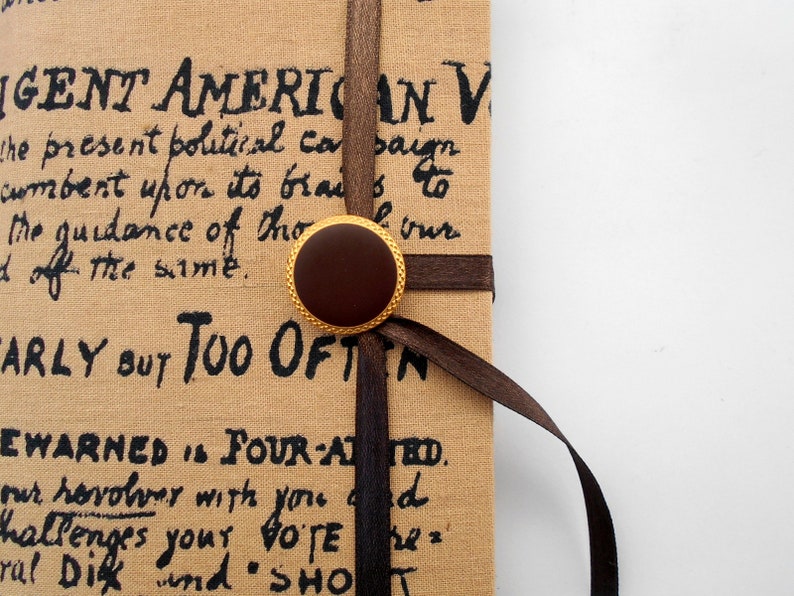 IGENT AMERICAN V
the present political campaign
cumbent upon its brains to
the guidance of those of our
d off the same.
EARLY BUT TOO OFTEN
EWARNED IS FOUR-ARMED.
our revolver with you and
hallenges your VOTE re=
ral DIX and "SHOOT